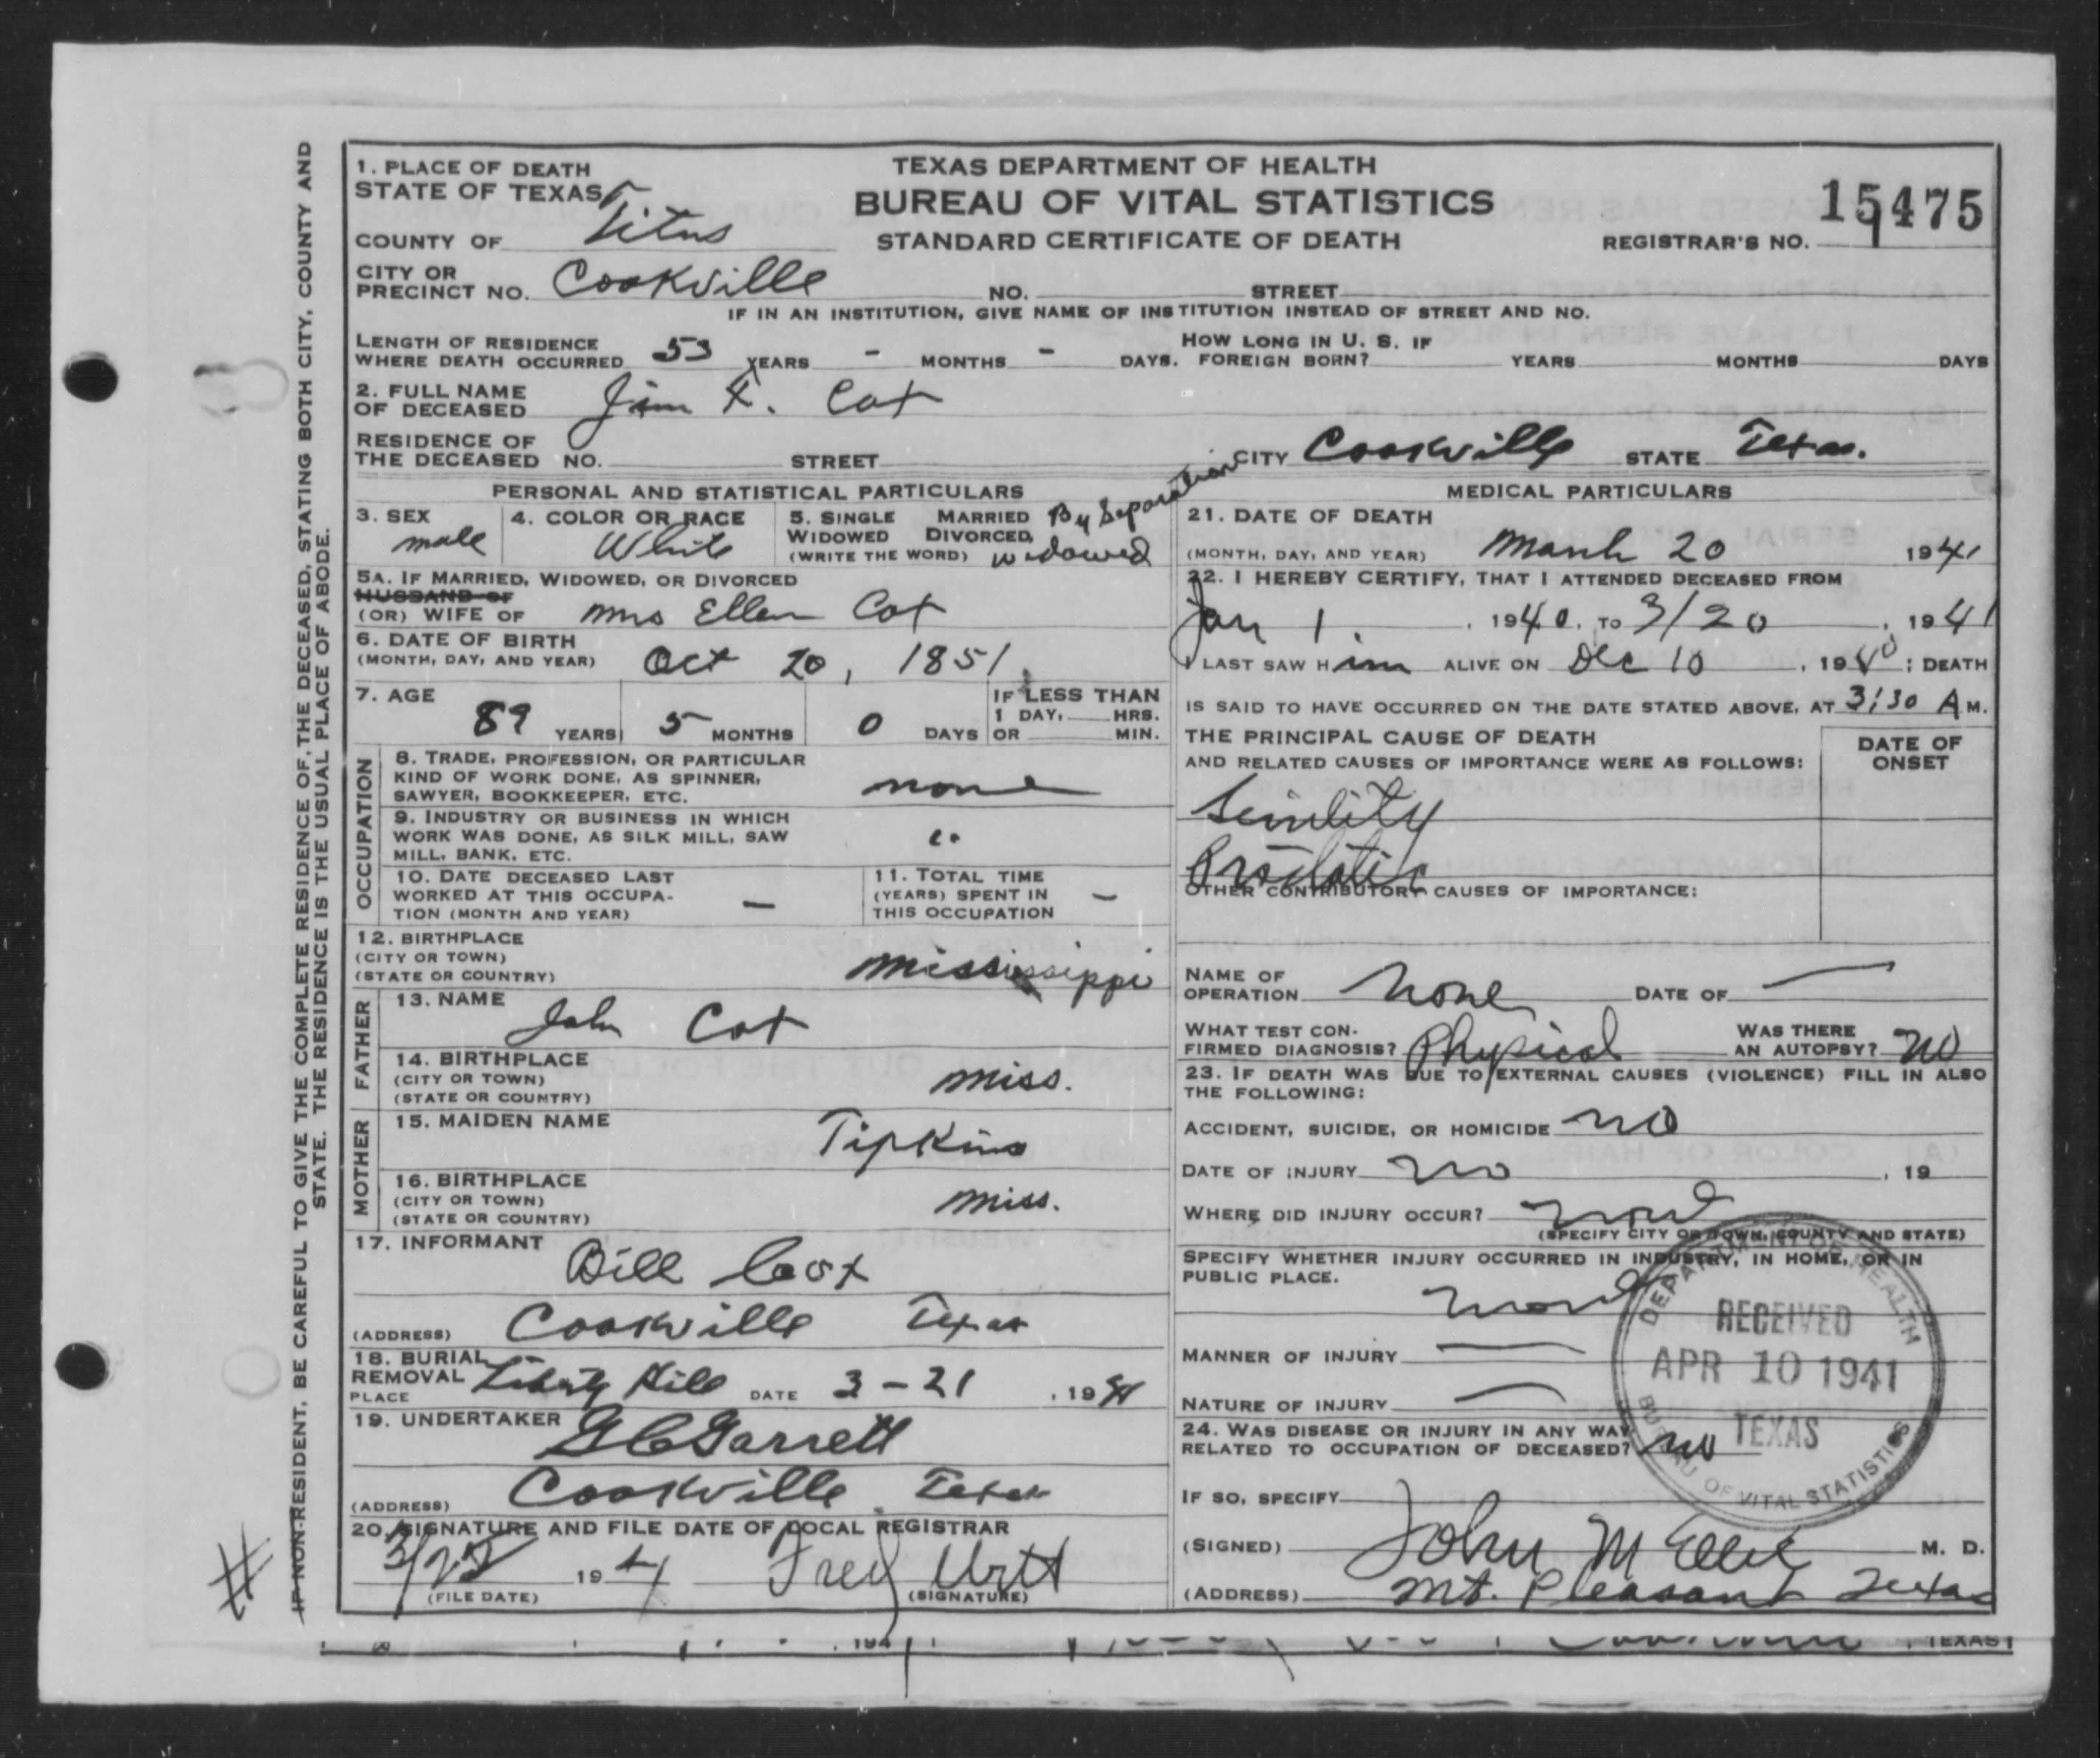 TEXAS DEPARTMENT OF HEALTH
BUREAU OF VITAL STATISTICS
STANDARD CERTIFICATE OF DEATH
15475
REGISTRAR'S NO.
1. PLACE OF DEATH
STATE OF TEXAS
COUNTY OF Titus
CITY OR PRECINCT NO. Cookville NO. STREET
IF IN AN INSTITUTION, GIVE NAME OF INSTITUTION INSTEAD OF STREET AND NO.
LENGTH OF RESIDENCE WHERE DEATH OCCURRED 53 YEARS - MONTHS - DAYS. HOW LONG IN U. S. IF FOREIGN BORN? YEARS MONTHS DAYS
2. FULL NAME OF DECEASED Jim F. Cox
RESIDENCE OF THE DECEASED NO. STREET CITY Cookville STATE Texas.
PERSONAL AND STATISTICAL PARTICULARS
3. SEX male
4. COLOR OR RACE White
5. SINGLE MARRIED WIDOWED DIVORCED, (WRITE THE WORD) By Separation widowed
5A. IF MARRIED, WIDOWED, OR DIVORCED
HUSBAND OF
(OR) WIFE OF Mrs Ellen Cox
6. DATE OF BIRTH
(MONTH, DAY, AND YEAR) Oct 20, 1851
7. AGE 89 YEARS 5 MONTHS 0 DAYS IF LESS THAN 1 DAY, HRS. OR MIN.
OCCUPATION
8. TRADE, PROFESSION, OR PARTICULAR
KIND OF WORK DONE, AS SPINNER,
SAWYER, BOOKKEEPER, ETC. none
9. INDUSTRY OR BUSINESS IN WHICH
WORK WAS DONE, AS SILK MILL, SAW
MILL, BANK, ETC. "
10. DATE DECEASED LAST
WORKED AT THIS OCCUPA-
TION (MONTH AND YEAR) -
11. TOTAL TIME
(YEARS) SPENT IN
THIS OCCUPATION -
12. BIRTHPLACE
(CITY OR TOWN)
(STATE OR COUNTRY) Mississippi
FATHER
13. NAME John Cox
14. BIRTHPLACE
(CITY OR TOWN)
(STATE OR COUNTRY) Miss.
MOTHER
15. MAIDEN NAME Tipkins
16. BIRTHPLACE
(CITY OR TOWN)
(STATE OR COUNTRY) Miss.
17. INFORMANT Bill Cox
(ADDRESS) Cookville Texas
18. BURIAL
REMOVAL
PLACE Liberty Hill DATE 3-21, 1941
19. UNDERTAKER G C Garrett
(ADDRESS) Cookville, Texas
20. SIGNATURE AND FILE DATE OF LOCAL REGISTRAR
1941 Fred
(FILE DATE) (SIGNATURE)
MEDICAL PARTICULARS
21. DATE OF DEATH
(MONTH, DAY, AND YEAR) March 20 1941
22. I HEREBY CERTIFY, THAT I ATTENDED DECEASED FROM
Jan 1, 1940, TO 3/20, 1941
I LAST SAW Him ALIVE ON Dec 10, 1940; DEATH
IS SAID TO HAVE OCCURRED ON THE DATE STATED ABOVE, AT 3:30 A M.
THE PRINCIPAL CAUSE OF DEATH
AND RELATED CAUSES OF IMPORTANCE WERE AS FOLLOWS:
DATE OF ONSET
OTHER CONTRIBUTORY CAUSES OF IMPORTANCE:
NAME OF OPERATION None DATE OF -
WHAT TEST CON-
FIRMED DIAGNOSIS? Physical WAS THERE AN AUTOPSY? no
23. IF DEATH WAS DUE TO EXTERNAL CAUSES (VIOLENCE) FILL IN ALSO
THE FOLLOWING:
ACCIDENT, SUICIDE, OR HOMICIDE no
DATE OF INJURY no, 19
WHERE DID INJURY OCCUR? none
(SPECIFY CITY OR TOWN, COUNTY AND STATE)
SPECIFY WHETHER INJURY OCCURRED IN INDUSTRY, IN HOME, OR IN
PUBLIC PLACE.
none
MANNER OF INJURY -
NATURE OF INJURY -
24. WAS DISEASE OR INJURY IN ANY WAY
RELATED TO OCCUPATION OF DECEASED? no
IF SO, SPECIFY
(SIGNED) John M Ellis M. D.
(ADDRESS) Mt. Pleasant Texas
DEPARTMENT OF HEALTH
RECEIVED
APR 10 1941
TEXAS
BUREAU OF VITAL STATISTICS
IF NON-RESIDENT, BE CAREFUL TO GIVE THE COMPLETE RESIDENCE OF THE DECEASED, STATING BOTH CITY, COUNTY AND
STATE. THE RESIDENCE IS THE USUAL PLACE OF ABODE.
#
, 194
, TEXAS